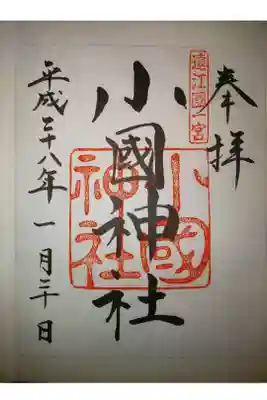 奉拝
遠江國一宮
小國神社
小國神社
平成二十八年一月三十日